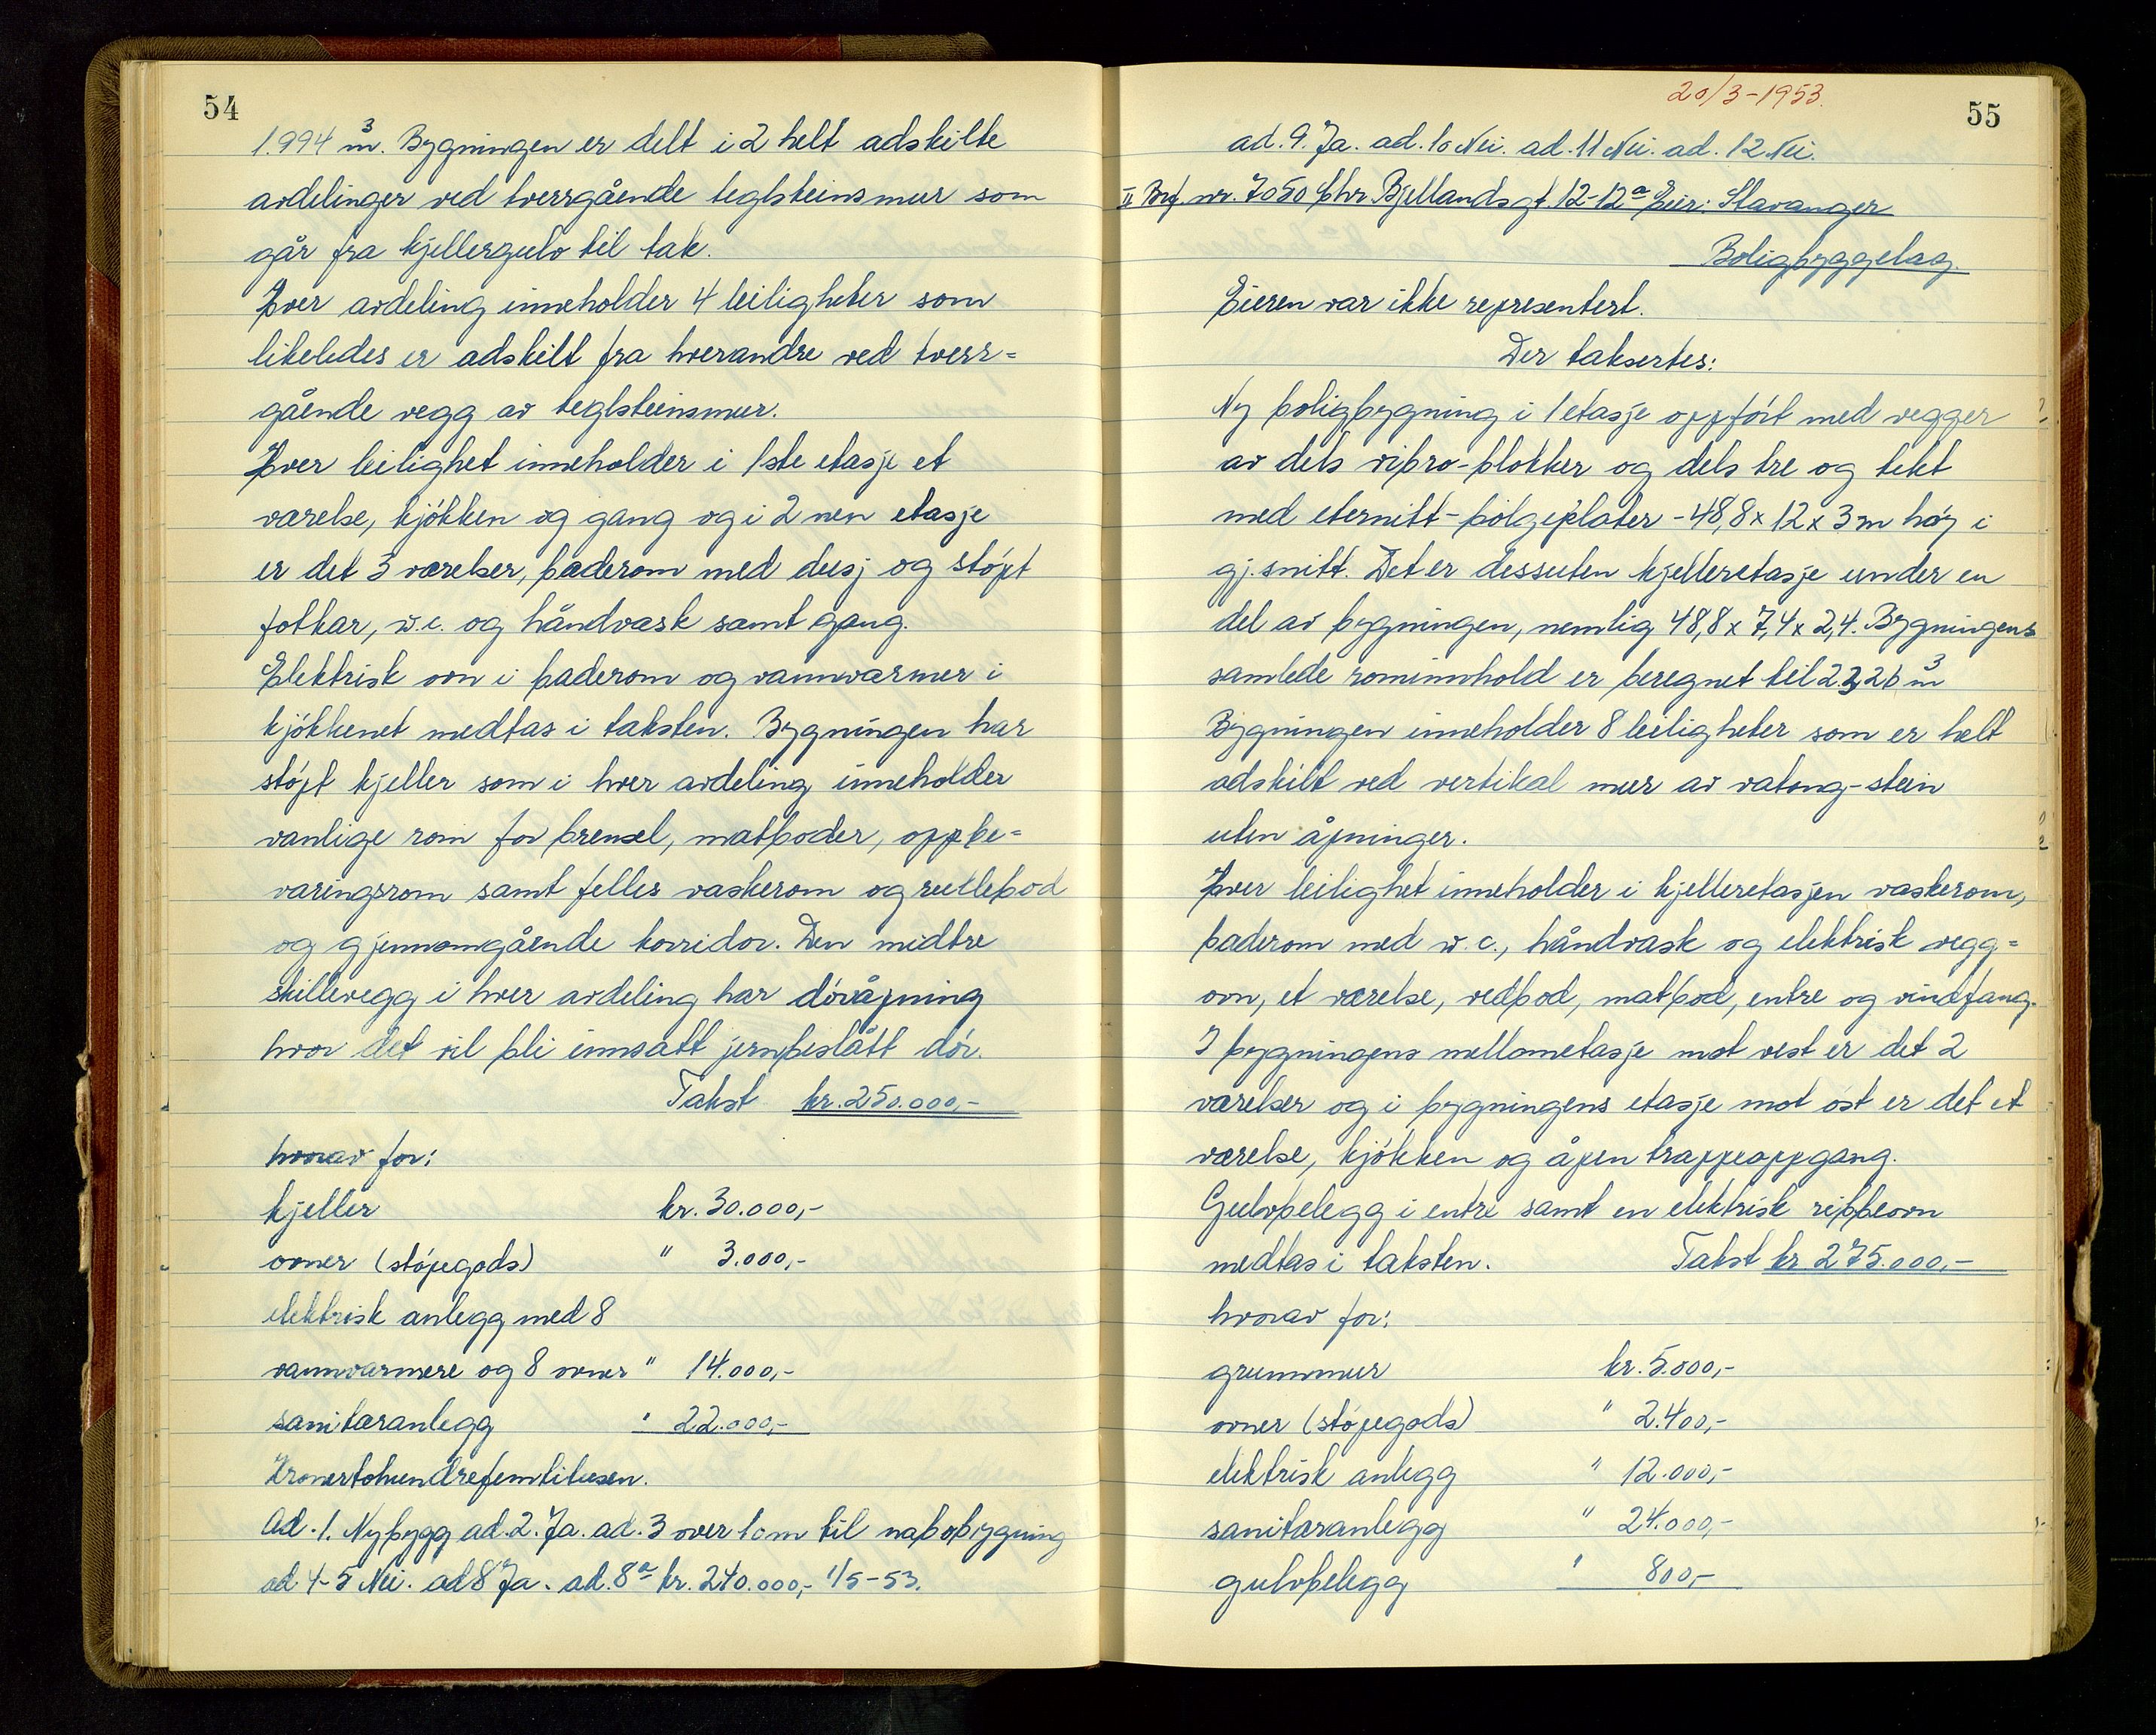 54
1.994 m³. Bygningen er delt i 2 helt adskilte
avdelinger ved tverrgående teglsteinsmur som
går fra kjellergulv til tak.
Hver avdeling inneholder 4 leiligheter som
likeledes er adskilt fra hverandre ved tverr=
gående vegg av teglsteinsmur.
Hver leilighet inneholder i 1ste etasje et
værelse, kjøkken og gang og i 2 nen etasje
er det 3 værelser, baderom med dusj og støpt
fotkar, w.c. og håndvask samt gang.
Elektrisk ovn i baderom og vannvarmer i
kjøkkenet medtas i taksten. Bygningen har
støpt kjeller som i hver avdeling inneholder
vanlige rom for brensel, matboder, oppbe=
varingsrom samt felles vaskerom og rullebod
og gjennomgående korridor. Den midtre
skillevegg i hver avdeling har døråpning
hvor det vil bli innsatt jernbeslått dør.
Takst kr. 250.000,-
hvorav for:
kjeller kr. 30.000,-
ovner (støpegods) " 3.000,-
elektrisk anlegg med 8
vannvarmere og 8 ovner " 14.000,-
sanitæranlegg " 22.000,-
Kronertohundrefemtitusen.
Ad. 1. Nybygg ad. 2. Ja. ad. 3 over 10 m til nabobygning
ad 4-5 Nei. ad 8 Ja. ad. 8a kr. 240.000,- 1/5-53.
20/3-1953.
55
ad. 9. Ja. ad. 10 Nei. ad. 11 Nei. ad. 12 Nei.
II Brf. nr. 7050 Chr. Bjellandsgt. 12-12a Eier: Stavanger
Boligbyggelag.
Eieren var ikke representert.
Der taksertes:
Ny boligbygning i 1 etasje oppført med vegger
av dels vibro-blokker og dels tre og tekt
med eternitt-bølgeplater - 48,8 x 12 x 3 m høy i
gj.snitt. Det er dessuten kjelleretasje under en
del av bygningen, nemlig 48,8 x 7,4 x 2,4. Bygningens
samlede rominnhold er beregnet til 2.326 m³
Bygningen inneholder 8 leiligheter som er helt
adskilt ved vertikal mur av vatong-stein
uten åpninger.
Hver leilighet inneholder i kjelleretasjen vaskerom,
baderom med w.c., håndvask og elektrisk vegg=
ovn, et værelse, vedbod, matbod, entre og vindfang.
I bygningens mellometasje mot vest er det 2
værelser og i bygningens etasje mot øst er det et
værelse, kjøkken og åpen trappeoppgang.
Gulvbelegg i entre samt en elektrisk ribbeovn
medtas i taksten. Takst kr 275.000,-
hvorav for:
grunnmur kr. 5.000,-
ovner (støpegods) " 2.400,-
elektrisk anlegg " 12.000,-
sanitæranlegg " 24.000,-
gulvbelegg " 800,-